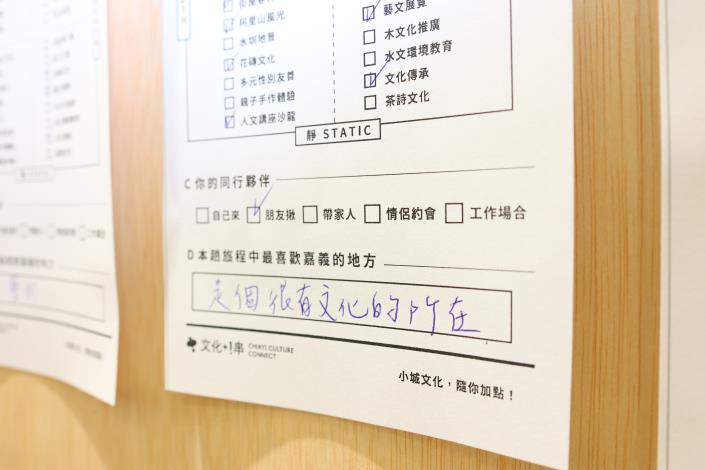 阿里山風光
水圳地景
花磚文化
多元性別友善
親子手作體驗
人文講座沙龍
藝文展覽
木文化推廣
水文環境教育
文化傳承
茶詩文化
靜 STATIC
C 你的同行夥伴
自己來 朋友揪 帶家人 情侶約會 工作場合
D 本趟旅程中最喜歡嘉義的地方
是個很有文化的所在
文化+!串 CHIAYI CULTURE CONNECT
小城文化,隨你加點!